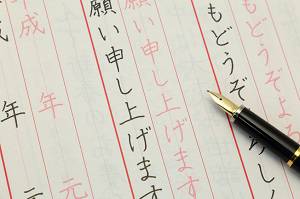 もどうぞよろ
もどうぞ
願い申し上げます
願い申し上げます
平成　年　元
成　年　元